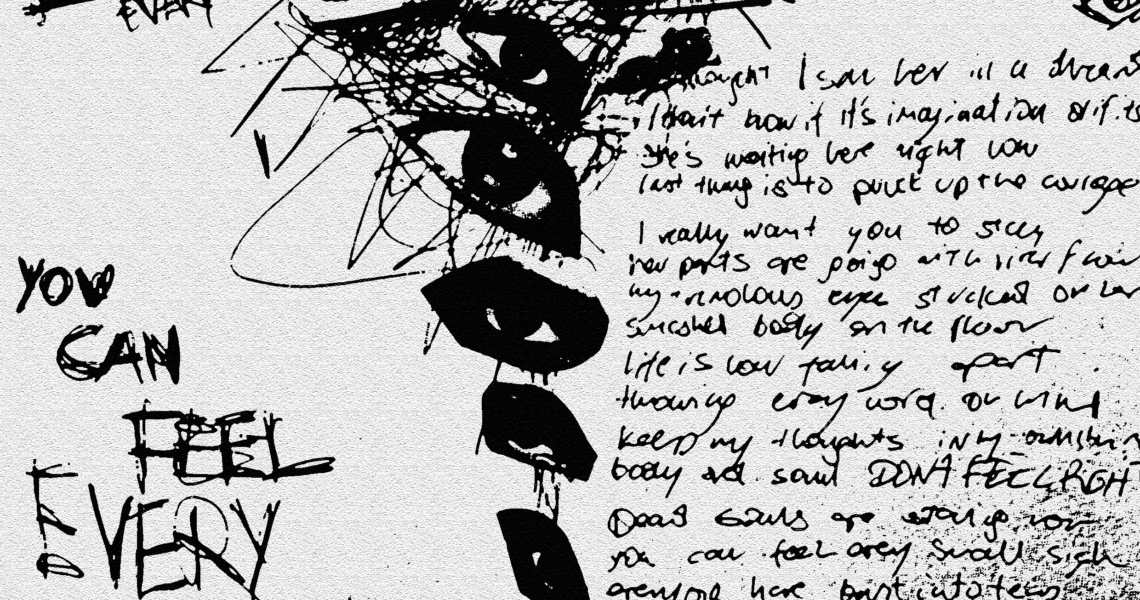 EVERY
YOU
CAN
FEEL
EVERY
thought I saw her in a dream
I don't know if it's imagination or if it's
She's waiting here right now
last thing is to up the courage
I really want you to stay
her parts are going with
eyes stucked on her
smashed body on the floor
life is now falling apart
throwing every word on mind
keep my thoughts in my
body and soul DONT FEEL RIGHT
Dead souls are now
you can feel every small sigh
everyone here burst into tears